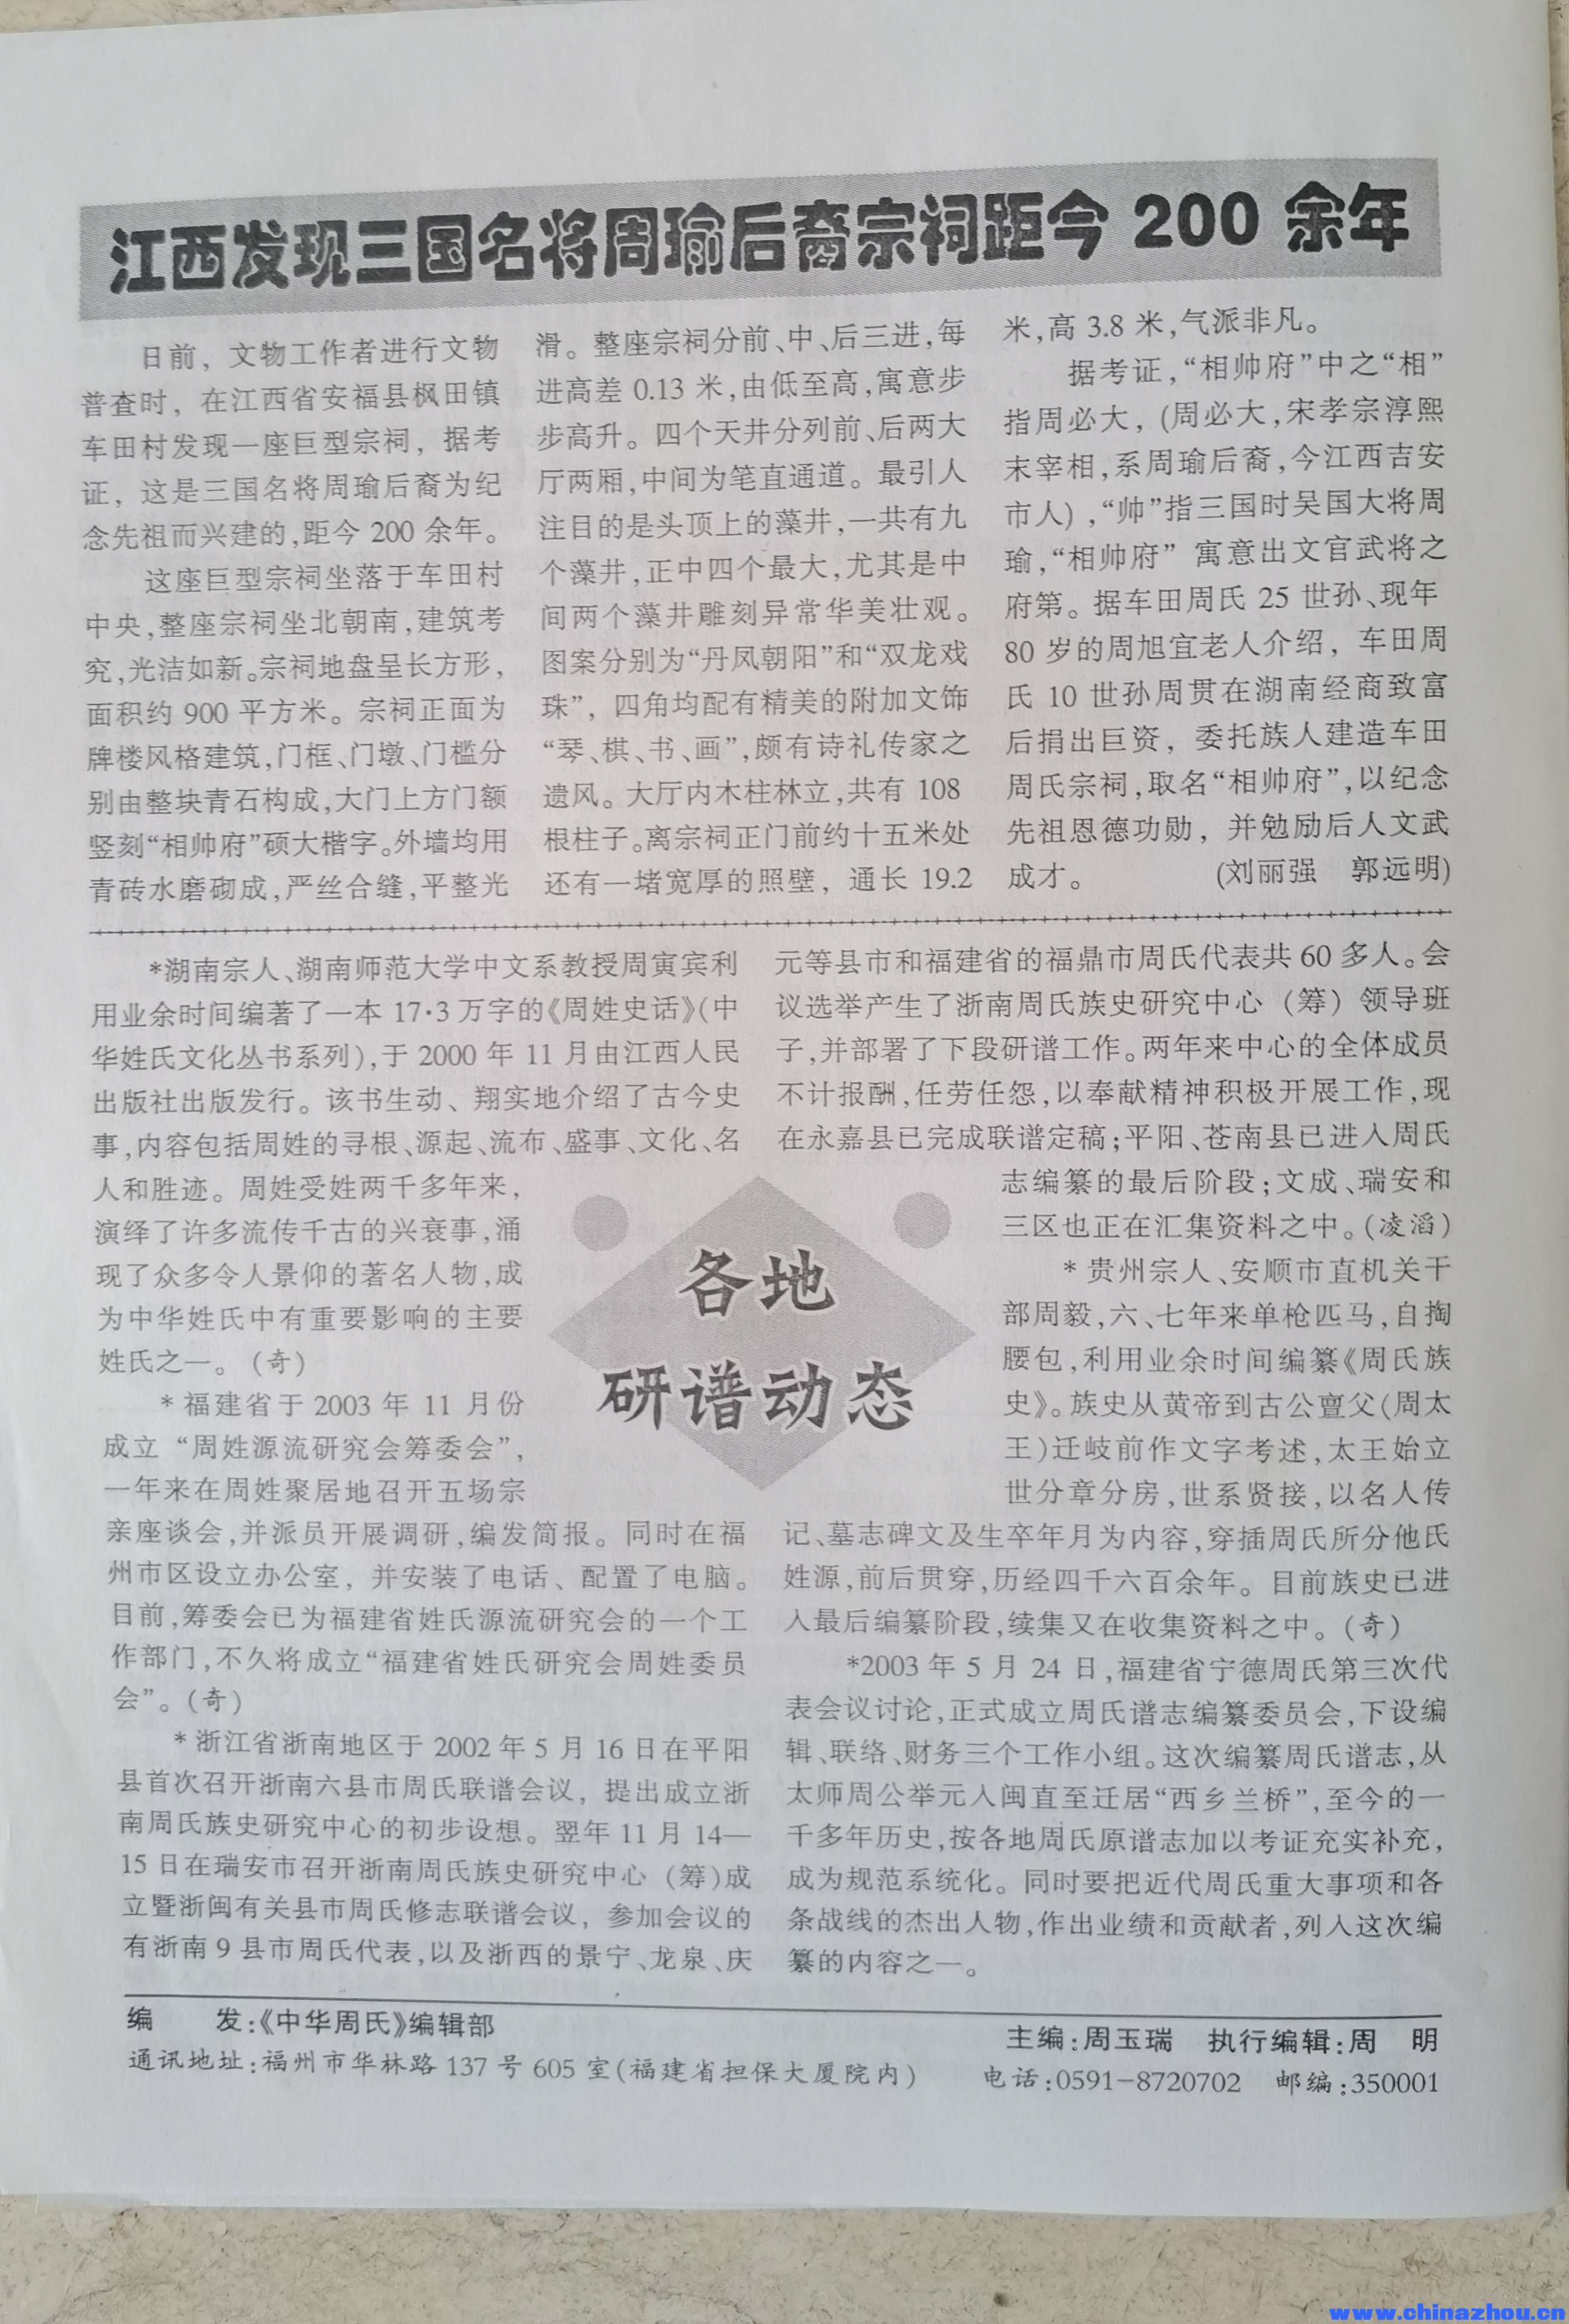 江西发现三国名将周瑜后裔宗祠距今 200 余年
日前，文物工作者进行文物
普查时，在江西省安福县枫田镇
车田村发现一座巨型宗祠，据考
证，这是三国名将周瑜后裔为纪
念先祖而兴建的，距今 200 余年。
这座巨型宗祠坐落于车田村
中央，整座宗祠坐北朝南，建筑考
究，光洁如新。宗祠地盘呈长方形，
面积约 900 平方米。宗祠正面为
牌楼风格建筑，门框、门墩、门槛分
别由整块青石构成，大门上方门额
竖刻“相帅府”硕大楷字。外墙均用
青砖水磨砌成，严丝合缝，平整光
滑。整座宗祠分前、中、后三进，每
进高差 0.13 米，由低至高，寓意步
步高升。四个天井分列前、后两大
厅两厢，中间为笔直通道。最引人
注目的是头顶上的藻井，一共有九
个藻井，正中四个最大，尤其是中
间两个藻井雕刻异常华美壮观。
图案分别为“丹凤朝阳”和“双龙戏
珠”，四角均配有精美的附加文饰
“琴、棋、书、画”，颇有诗礼传家之
遗风。大厅内木柱林立，共有 108
根柱子。离宗祠正门前约十五米处
还有一堵宽厚的照壁，通长 19.2
米，高 3.8 米，气派非凡。
据考证，“相帅府”中之“相”
指周必大，(周必大，宋孝宗淳熙
末宰相，系周瑜后裔，今江西吉安
市人)，“帅”指三国时吴国大将周
瑜，“相帅府”寓意出文官武将之
府第。据车田周氏 25 世孙、现年
80 岁的周旭宜老人介绍，车田周
氏 10 世孙周贯在湖南经商致富
后捐出巨资，委托族人建造车田
周氏宗祠，取名“相帅府”，以纪念
先祖恩德功勋，并勉励后人文武
成才。 (刘丽强 郭远明)
*湖南宗人、湖南师范大学中文系教授周寅宾利
用业余时间编著了一本 17·3 万字的《周姓史话》(中
华姓氏文化丛书系列)，于 2000 年 11 月由江西人民
出版社出版发行。该书生动、翔实地介绍了古今史
事，内容包括周姓的寻根、源起、流布、盛事、文化、名
人和胜迹。周姓受姓两千多年来，
演绎了许多流传千古的兴衰事，涌
现了众多令人景仰的著名人物，成
为中华姓氏中有重要影响的主要
姓氏之一。(奇)
*福建省于 2003 年 11 月份
成立“周姓源流研究会筹委会”，
一年来在周姓聚居地召开五场宗
亲座谈会，并派员开展调研，编发简报。同时在福
州市区设立办公室，并安装了电话、配置了电脑。
目前，筹委会已为福建省姓氏源流研究会的一个工
作部门，不久将成立“福建省姓氏研究会周姓委员
会”。(奇)
*浙江省浙南地区于 2002 年 5 月 16 日在平阳
县首次召开浙南六县市周氏联谱会议，提出成立浙
南周氏族史研究中心的初步设想。翌年 11 月 14—
15 日在瑞安市召开浙南周氏族史研究中心（筹)成
立暨浙闽有关县市周氏修志联谱会议，参加会议的
有浙南 9 县市周氏代表，以及浙西的景宁、龙泉、庆
各地
研谱动态
元等县市和福建省的福鼎市周氏代表共 60 多人。会
议选举产生了浙南周氏族史研究中心（筹）领导班
子，并部署了下段研谱工作。两年来中心的全体成员
不计报酬，任劳任怨，以奉献精神积极开展工作，现
在永嘉县已完成联谱定稿；平阳、苍南县已进入周氏
志编纂的最后阶段；文成、瑞安和
三区也正在汇集资料之中。(凌滔)
*贵州宗人、安顺市直机关干
部周毅，六、七年来单枪匹马，自掏
腰包，利用业余时间编纂《周氏族
史》。族史从黄帝到古公亶父(周太
王)迁岐前作文字考述，太王始立
世分章分房，世系贤接，以名人传
记、墓志碑文及生卒年月为内容，穿插周氏所分他氏
姓源，前后贯穿，历经四千六百余年。目前族史已进
入最后编纂阶段，续集又在收集资料之中。(奇)
*2003 年 5 月 24 日，福建省宁德周氏第三次代
表会议讨论，正式成立周氏谱志编纂委员会，下设编
辑、联络、财务三个工作小组。这次编纂周氏谱志，从
太师周公举元入闽直至迁居“西乡兰桥”，至今的一
千多年历史，按各地周氏原谱志加以考证充实补充，
成为规范系统化。同时要把近代周氏重大事项和各
条战线的杰出人物，作出业绩和贡献者，列入这次编
纂的内容之一。
编 发：《中华周氏》编辑部
主编：周玉瑞 执行编辑：周 明
通讯地址：福州市华林路 137 号 605 室(福建省担保大厦院内)
电话：0591-8720702 邮编：350001
www.chinazhou.cn